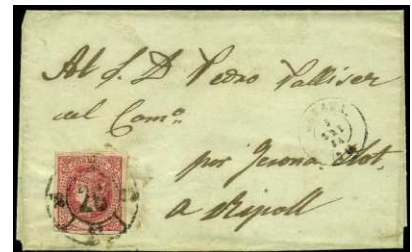 Al S. D. Pedro Palliser
del Comº
por Jerona Olot
a Ripoll